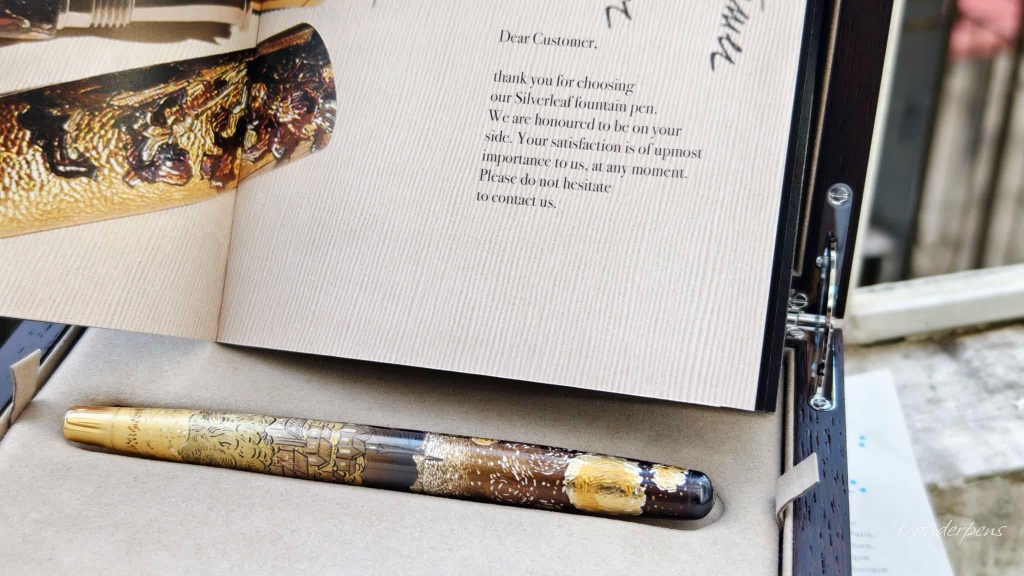 Dear Customer,
thank you for choosing
our Silverleaf fountain pen.
We are honoured to be on your
side. Your satisfaction is of upmost
importance to us, at any moment.
Please do not hesitate
to contact us.
Vanderpens